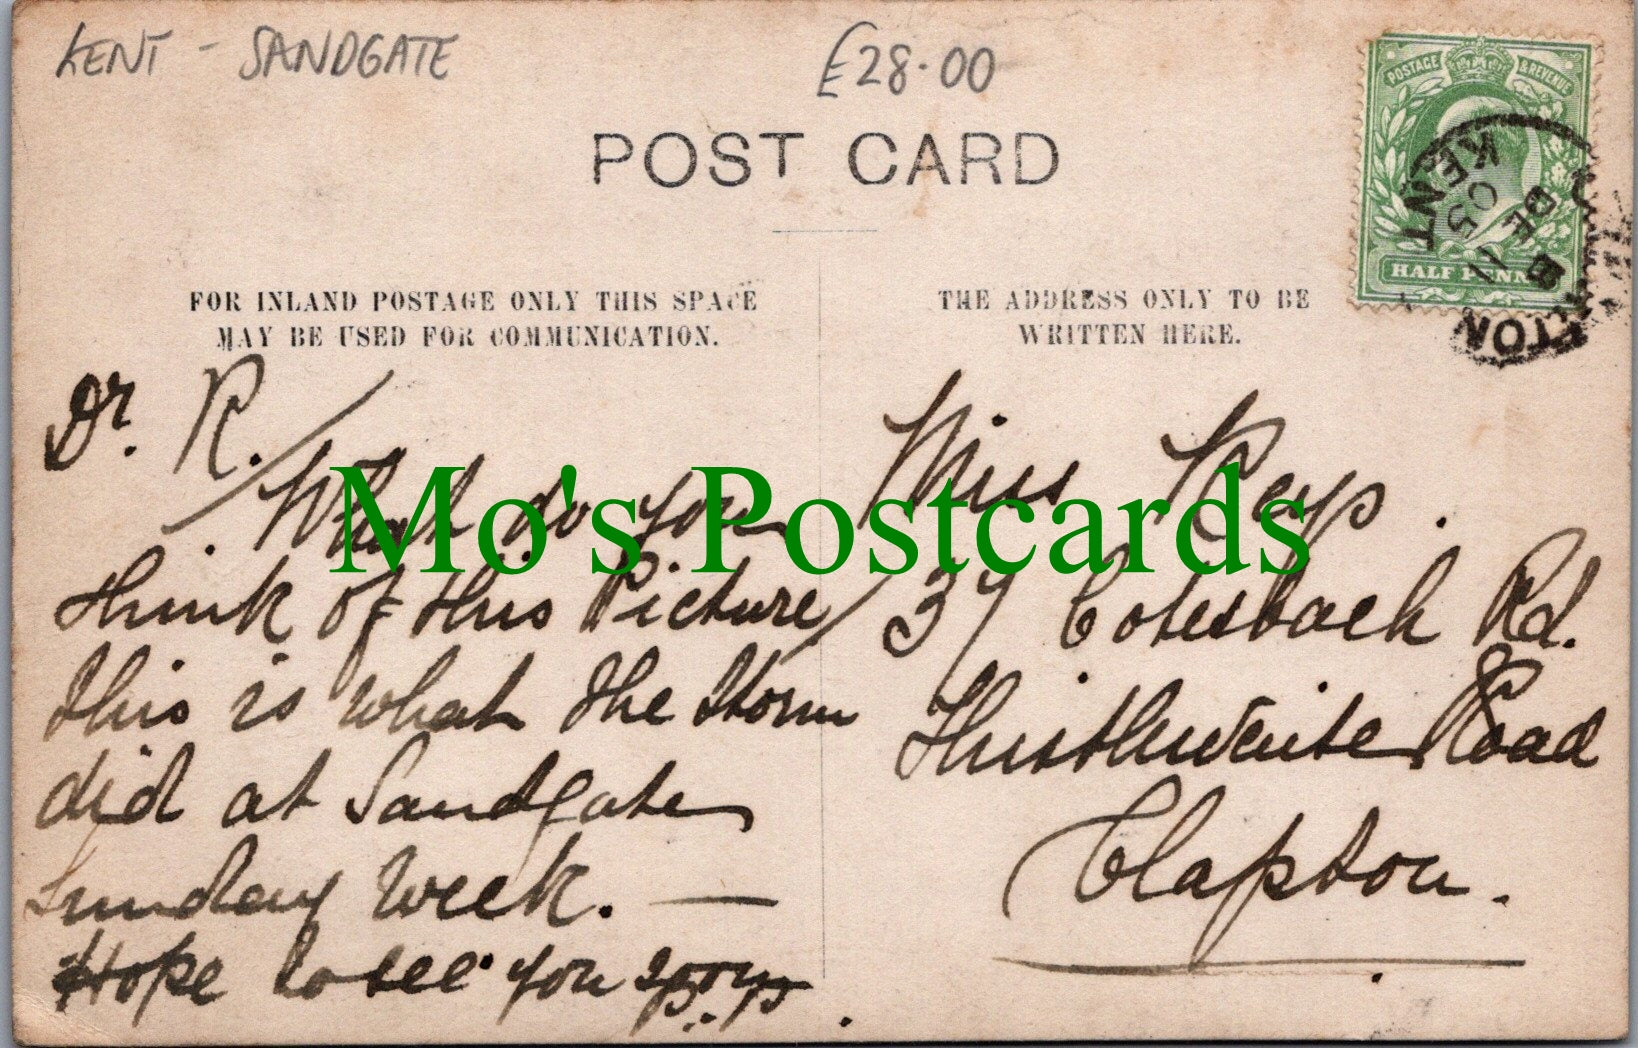 KENT - SANDGATE
£28.00
POST CARD
POSTAGE & REVENUE
HALF PENNY
KENT
DE 11
05
TON
FOR INLAND POSTAGE ONLY THIS SPACE
MAY BE USED FOR COMMUNICATION.
THE ADDRESS ONLY TO BE
WRITTEN HERE.
Dr. R.
What do you
think of this Picture
this is what the Storm
did at Sandgate
Sunday Week. —
Hope to see you
Miss Keys.
37 Cotesbach Rd.
Road
Clapton.
Mo's Postcards